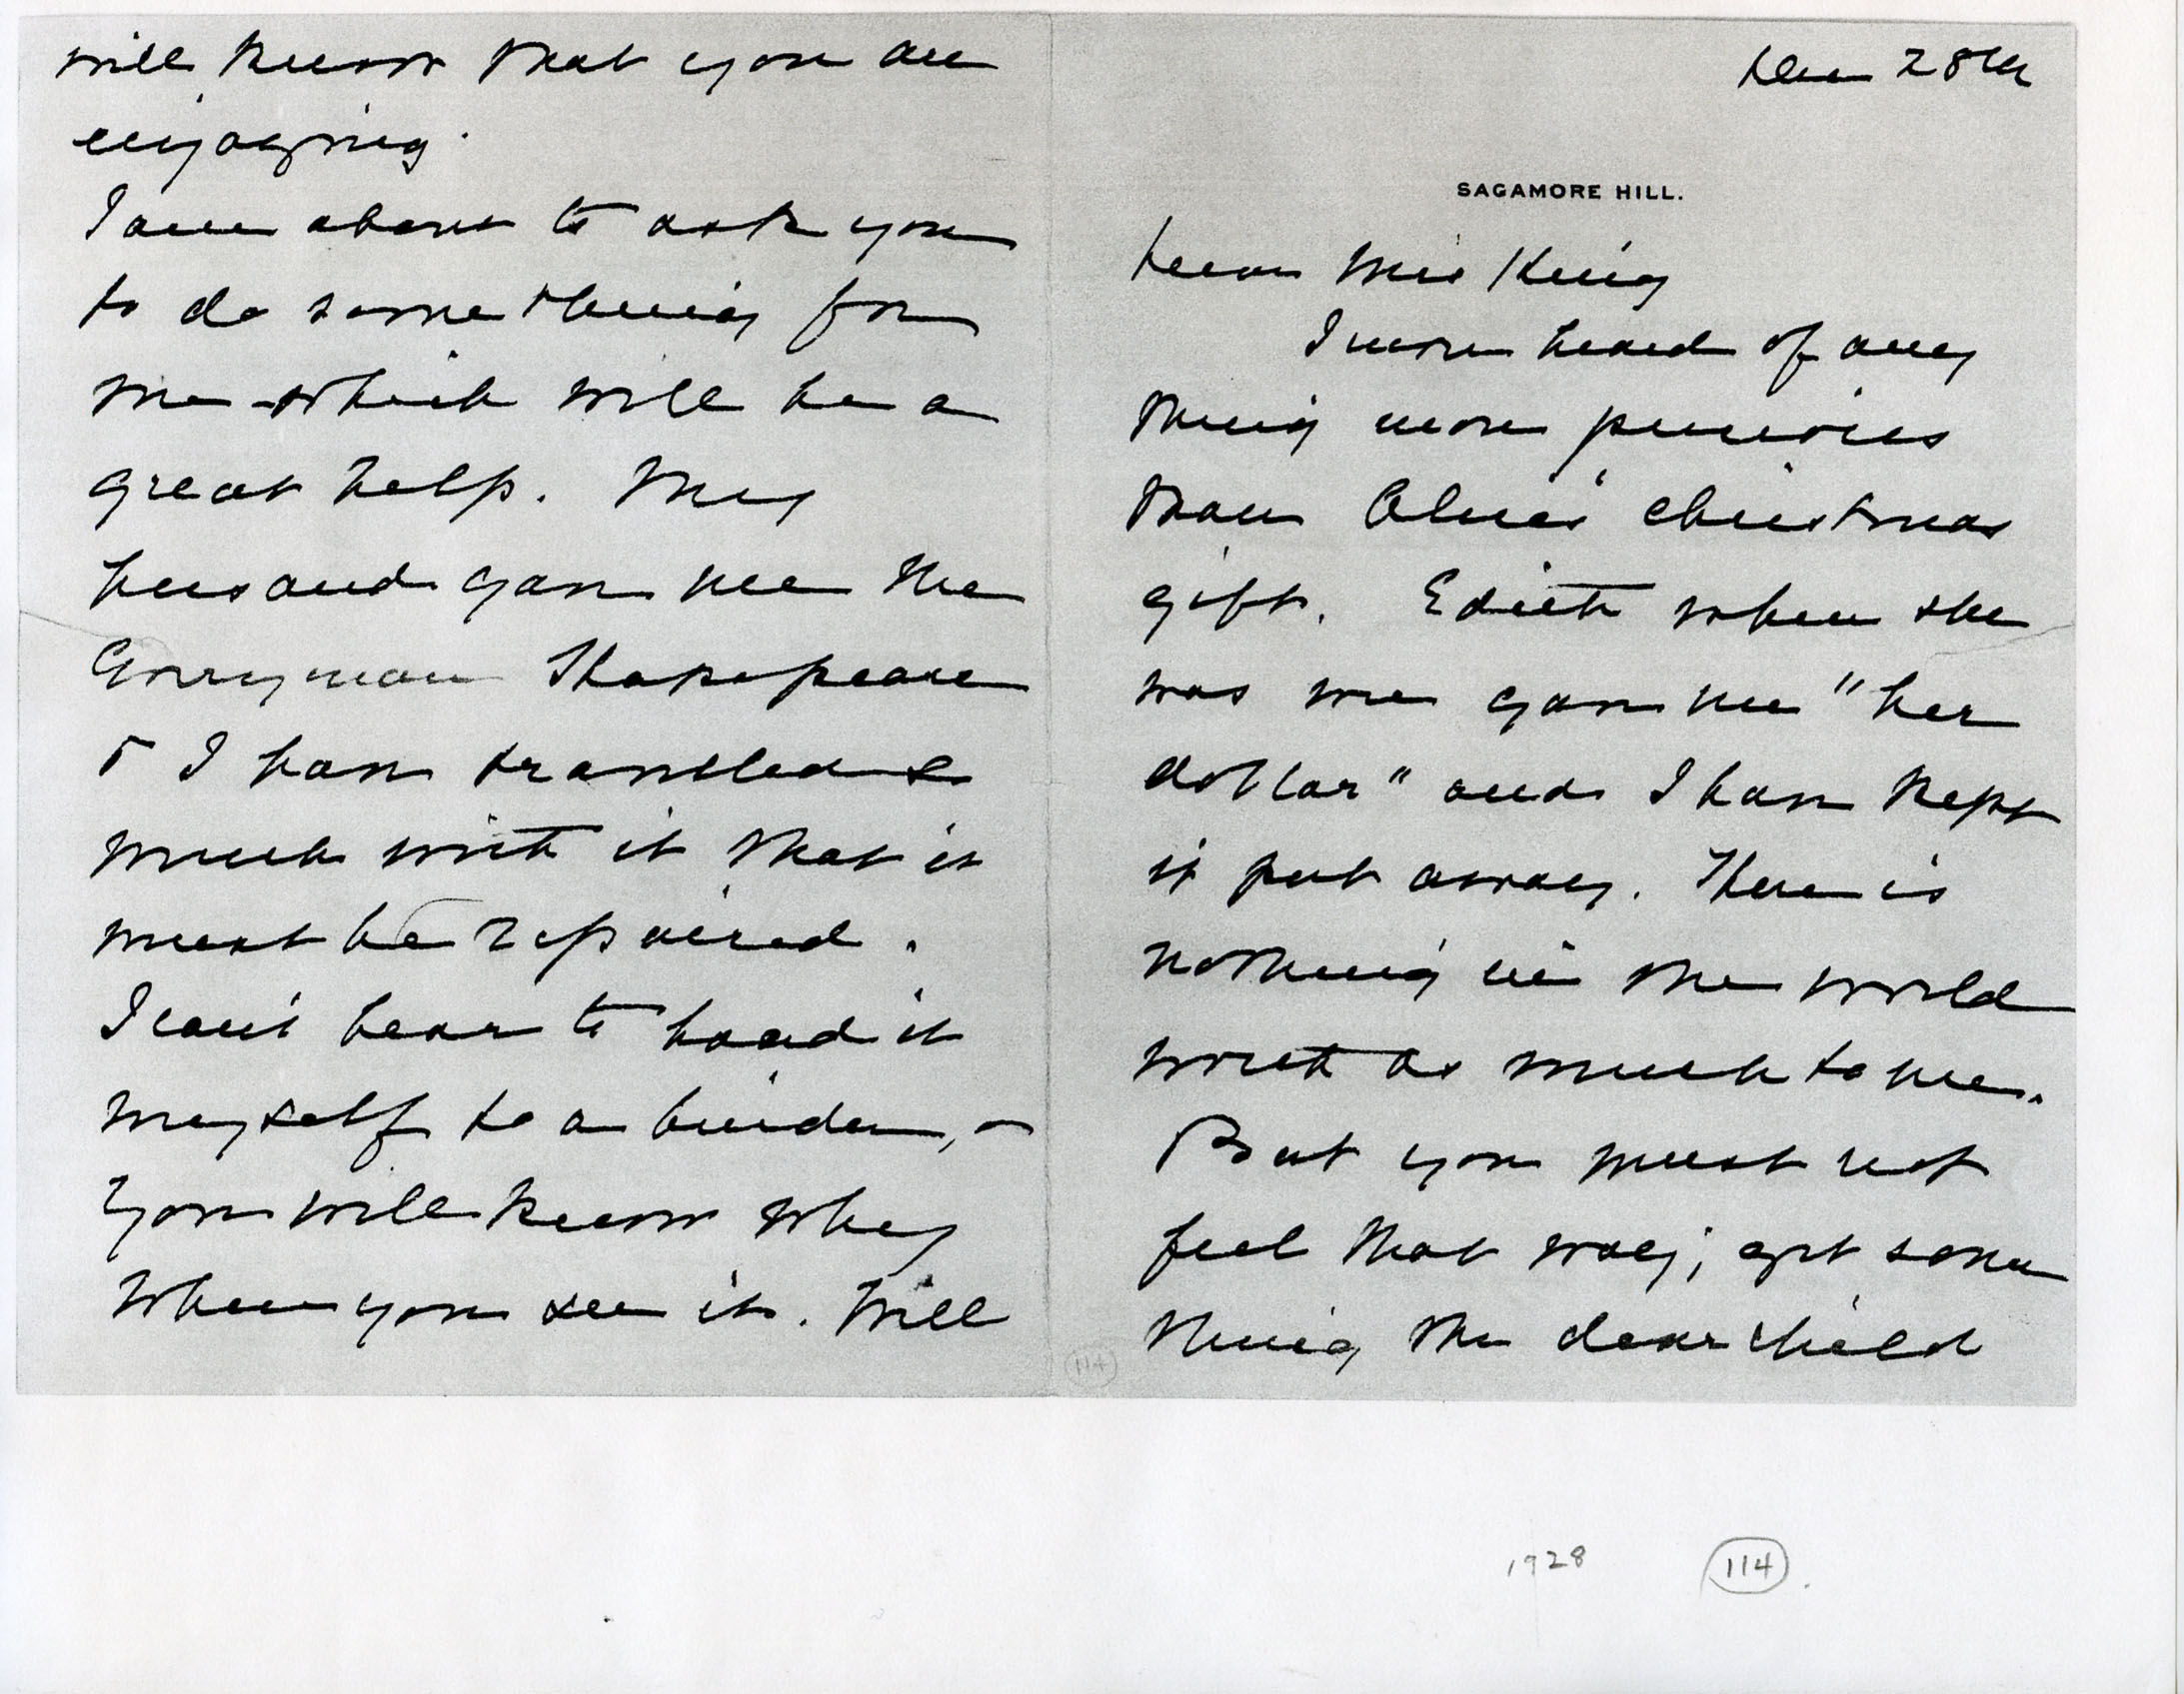 Dec 28th
SAGAMORE HILL.
Dear Mrs King
I never heard of any
thing more precious
than Alice's Christmas
gift. Edith when she
was wee gave me "her
dollar" and I have kept
it put away. There is
nothing in the world
worth as much to me.
But you must not
feel that way; get some
thing the dear child
will know that you are
enjoying.
I am about to ask you
to do something for
me which will be a
great help. My
husband gave me the
Everyman Shakespeare
& I have travelled so
much with it that it
must be repaired.
I can't bear to hand it
myself to a binder, -
You will know why
when you see it. Will
114
1928
114